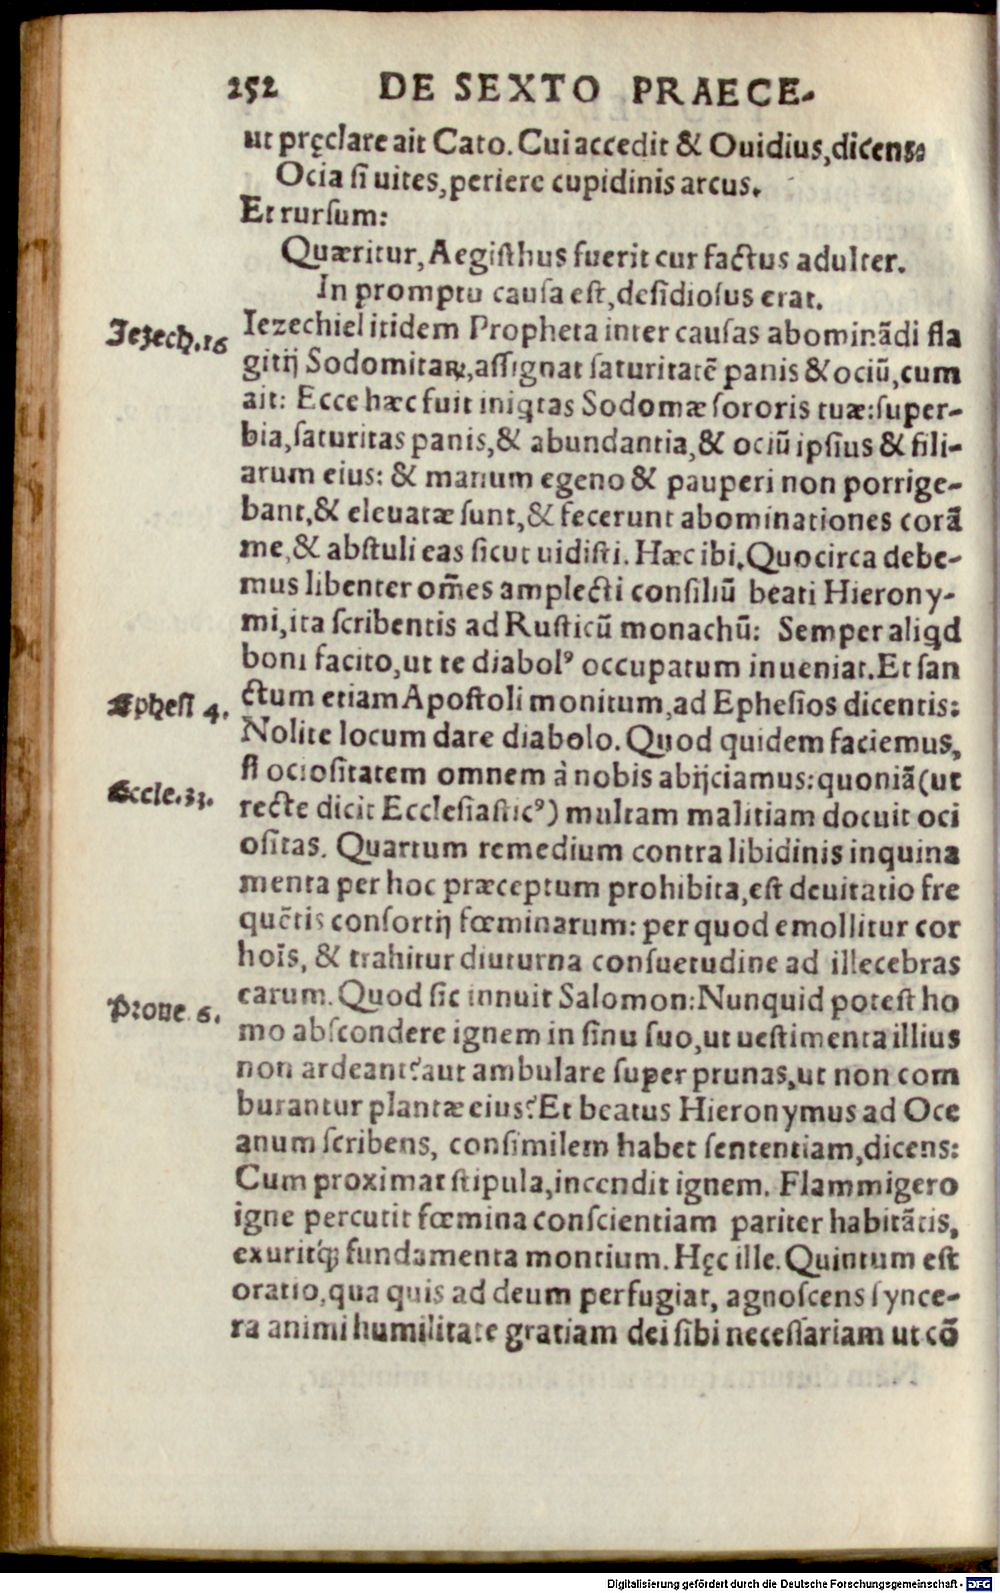 252 DE SEXTO PRAECE-
ut pręclare ait Cato. Cui accedit & Ouidius, dicens:
Ocia ſi uites, periere cupidinis arcus.
Et rurſum:
Quæritur, Aegiſthus fuerit cur factus adulter.
In promptu cauſa eſt, deſidioſus erat.
Iezech. 16
Iezechiel itidem Propheta inter cauſas abominãdi fla
gitij Sodomitaꝝ, aſſignat ſaturitatẽ panis & ociũ, cum
ait: Ecce hæc fuit iniq̃tas Sodomæ ſororis tuæ: ſuper-
bia, ſaturitas panis, & abundantia, & ociũ ipſius & fili-
arum eius: & manum egeno & pauperi non porrige-
bant, & eleuatæ ſunt, & fecerunt abominationes corã
me, & abſtuli eas ſicut uidiſti. Hæc ibi. Quocirca debe-
mus libenter om̃es amplecti conſiliũ beati Hierony-
mi, ita ſcribentis ad Ruſticũ monachũ: Semper aliq̃d
boni facito, ut te diabolꝰ occupatum inueniat. Et ſan
Epheſ 4.
ctum etiam Apoſtoli monitum, ad Epheſios dicentis:
Nolite locum dare diabolo. Quod quidem faciemus,
ſi ocioſitatem omnem à nobis abijciamus: quoniã (ut
Eccle. 33.
recte dicit Eccleſiaſticꝰ) multam malitiam docuit oci
oſitas. Quartum remedium contra libidinis inquina
menta per hoc præceptum prohibita, eſt deuitatio fre
quẽtis conſortij fœminarum: per quod emollitur cor
hoĩs, & trahitur diuturna conſuetudine ad illecebras
Proue 6.
earum. Quod ſic innuit Salomon: Nunquid poteſt ho
mo abſcondere ignem in ſinu ſuo, ut ueſtimenta illius
non ardeant? aut ambulare ſuper prunas, ut non com
burantur plantæ eius? Et beatus Hieronymus ad Oce
anum ſcribens, conſimilem habet ſententiam, dicens:
Cum proximat ſtipula, incendit ignem. Flammigero
igne percutit fœmina conſcientiam pariter habitãtis,
exuritq́ꝫ fundamenta montium. Hęc ille. Quintum eſt
oratio, qua quis ad deum perfugiat, agnoſcens ſynce-
ra animi humilitate gratiam dei ſibi neceſſariam ut cõ
Digitalisierung gefördert durch die Deutsche Forschungsgemeinschaft - DFG